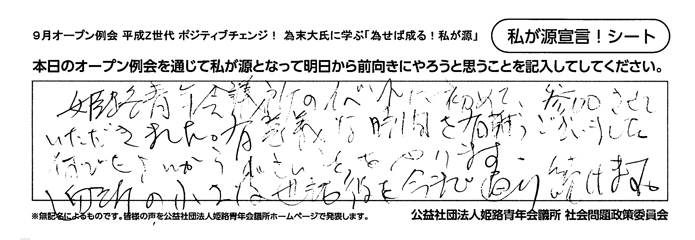 9月オープン例会 平成Z世代 ポジティブチェンジ！ 為末大氏に学ぶ「為せば成る！私が源」
私が源宣言！シート
本日のオープン例会を通じて私が源となって明日から前向きにやろうと思うことを記入してしてください。
姫路青年会議所のイベントに初めて、参加させ
いただきました。有意義な時間を有難うございました
何でもいいから小さいことをやります。
小さな世話役を今まで通り続けます。
※無記名によるものです。皆様の声を公益社団法人姫路青年会議所ホームページで発表します。
公益社団法人姫路青年会議所 社会問題政策委員会